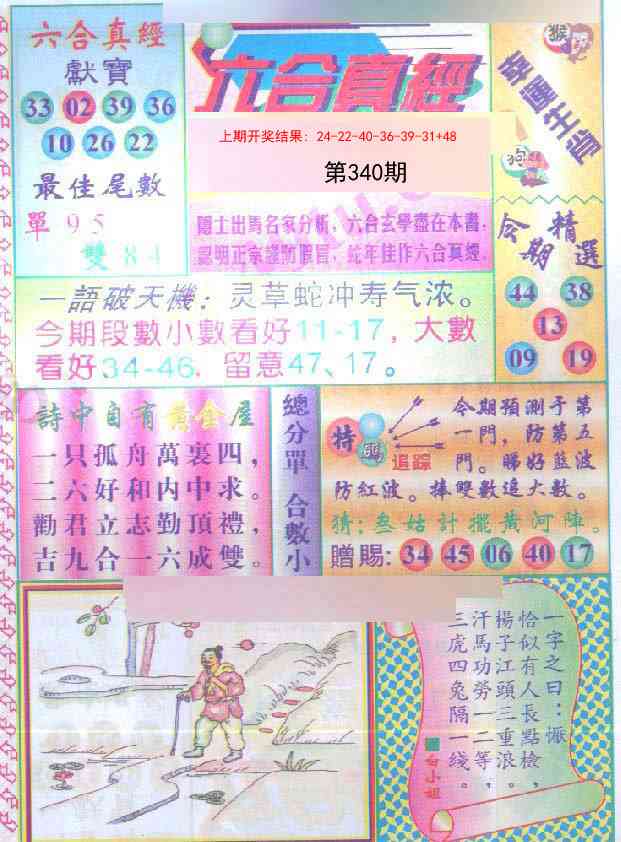 六合真經
獻寶
33 02 39 36
10 26 22
最佳尾數
單 9 5
雙 8 4
六合真經
上期开奖结果：24-22-40-36-39-31+48
第340期
隱士出馬名家分析，六合玄學盡在本書，
認明正宗謹防假冒，蛇年佳作六合真經。
幸運生肖
猴
狗
今期精選
44 38
13
09 19
一語破天機：灵草蛇冲寿气浓。
今期段數小數看好11-17，大數
看好34-46，留意47、17。
詩中自有黃金屋
一只孤舟萬裏四，
二六好和内中求。
勸君立志勤頂禮，
吉九合一六成雙。
總分單 合數小
特
追踪
今期預測子第
一門，防第五
門。睇好藍波
防紅波。捧雙數追大數。
猜：叁姑計擺黃河陣。
贈賜：34 45 06 40 17
一字之曰：
恰似有人長點檢，
楊子江頭三重浪，
汗馬功勞一二等，
三虎四兔隔一线。
白小姐